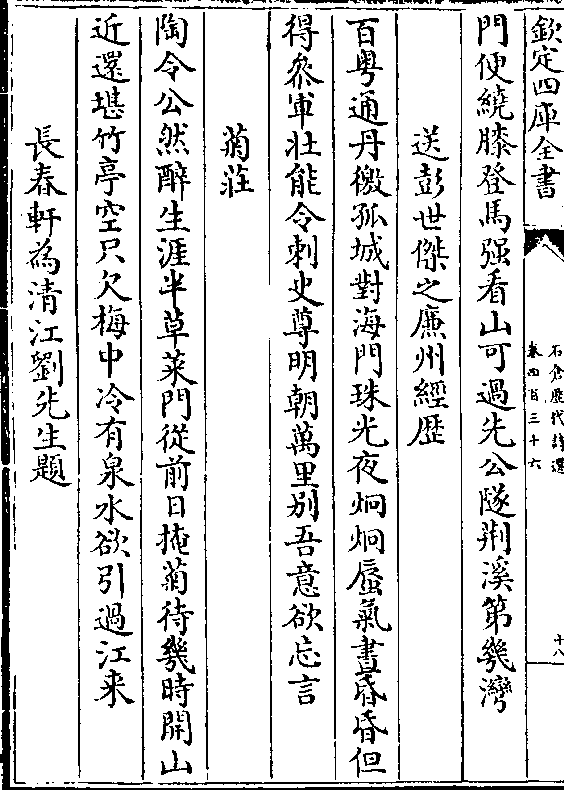 欽定四庫全書
石倉歷代詩選
卷四百三十六
十八
門便繞膝登馬强看山可過先公隧荆溪第幾灣
送彭世傑之廉州經歴
百粤通丹徼孤城對海門珠光夜炯炯蜃氣晝昏昏但
得叅軍壯能令刺史尊明朝萬里别吾意欲忘言
菊莊
陶令公然醉生涯半草萊門從前日掩菊待幾時開山
近還堪竹亭空只欠梅中冷有泉水欲引過江来
長春軒為清江劉先生題